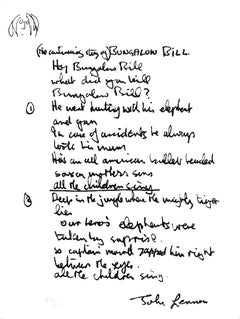 (The continuing story of) BUNGALOW BILL
Hey Bungalow Bill
what did you kill
Bungalow Bill?
① He went hunting with his elephant
and gun
In case of accidents he always
took his mum
He's an all american bullet headed
saxon mothers son
all the children sing
② Deep in the jungle where the mighty tiger
lies
our hero's elephants were
taken by surprise.
so captain marvel zapped him right
between the eyes.
all the children sing
John Lennon